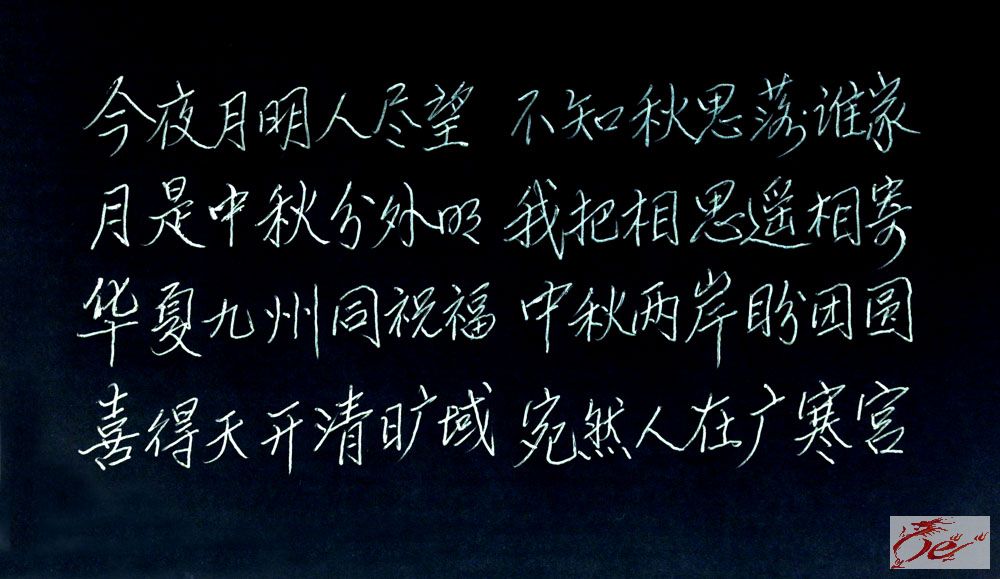 今夜月明人尽望 不知秋思落谁家
月是中秋分外明 我把相思遥相寄
华夏九州同祝福 中秋两岸盼团圆
喜得天开清旷域 宛然人在广寒宫